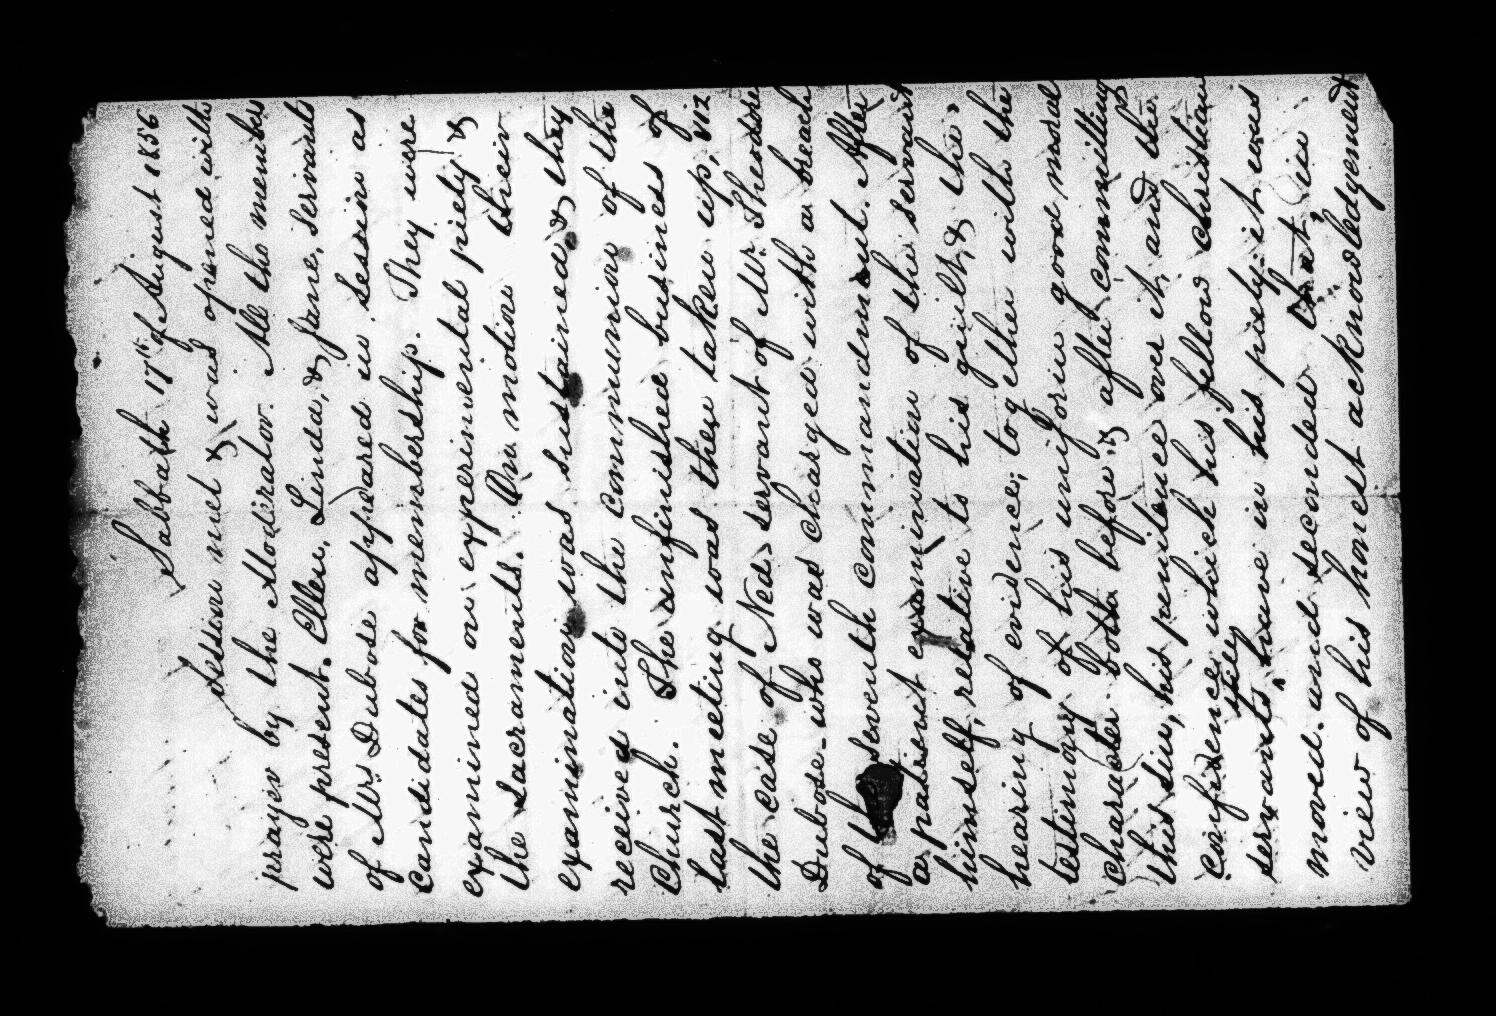 Sabbath 17th of August 1856
Session met & was opened with
prayer by the Moderator. All the members
were present. Ellen, Linda, & Jane, servants
of Mr Dubose appeared in Session as
Candidates for membership. They were
examined on experimental piety &
the Sacraments. On motion their
examination was sustained & they
received into the communion of the
Church. The unfinished business of
last meeting was then taken up, viz
the case of Ned servant of Mr. Theodore
Dubose who was charged with a breach
of the seventh commandment. After
a patient examination of the servant
himself, relative to his guilt, & the
hearing of evidence; together with the
testimony of his uniform good moral
character both before & after committing
this sin, his penitence over it, and the
confidence which his fellow christian
servants still have in his piety, it was
moved and seconded that, in
view of his honest acknowledgement